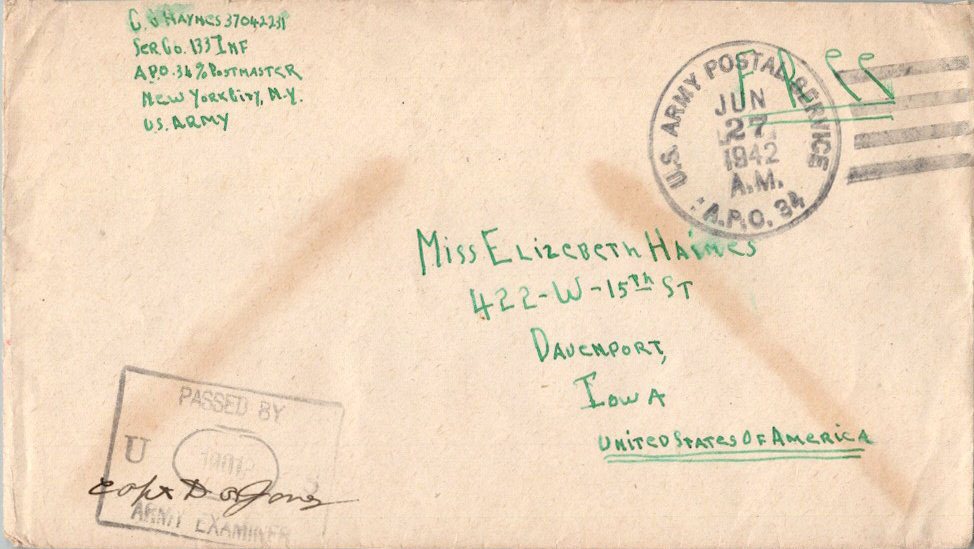 C. J HAYNES 37042231
SER CO. 133 INF
A.P.O. 34 % POSTMASTER
NEW YORK CITY, N.Y.
U.S. ARMY
FREE
U.S. ARMY POSTAL SERVICE
JUN
27
1942
A.M.
A.P.O. 34
MISS ELIZEBETH HAINES
422-W-15TH ST
DAVENPORT,
IOWA
UNITED STATES OF AMERICA
PASSED BY
U S
Capt D Jones
ARMY EXAMINER